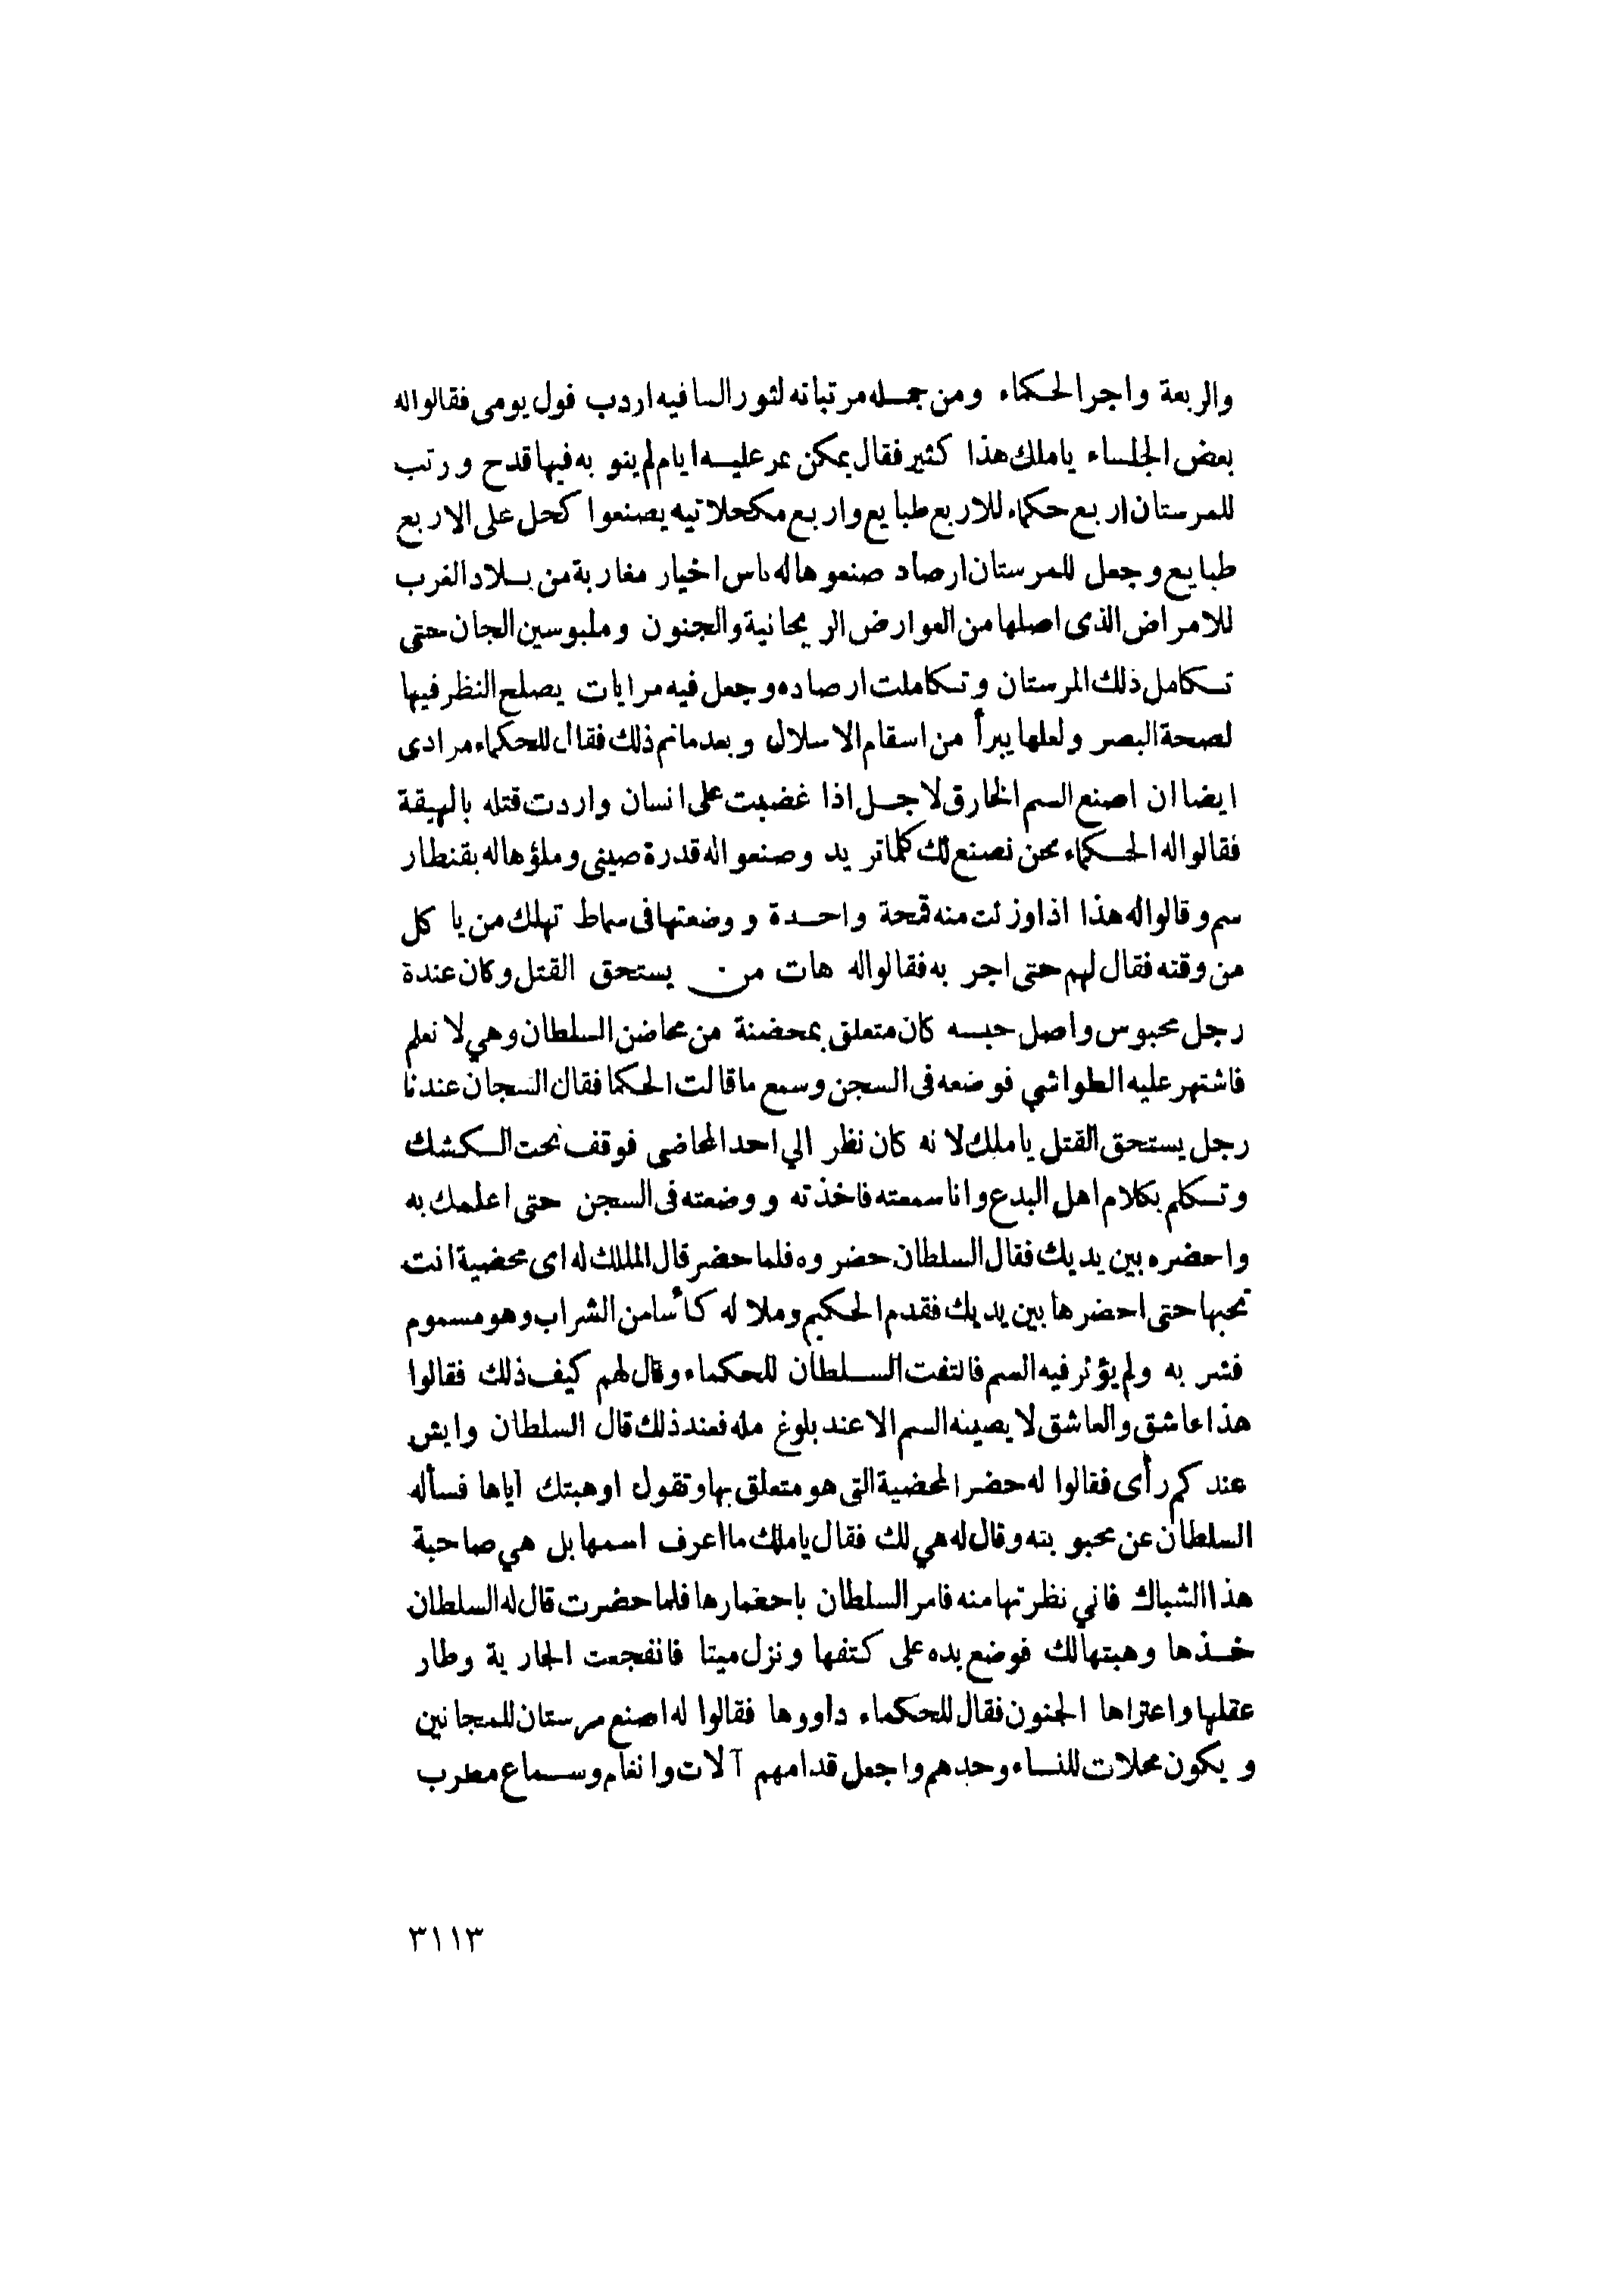 والربعة واجر الحكماء ومن جمله مرتباته لثور السافيه اردب فول يومى فقالوا له
بعض الجلساء ياملك هذا كثير فقال يمكن يمر عليه ايام لم ينو به فيها قدح ورتب
للمرستان اربع حكماء للاربع طبايع واربع مكحلاتيه يصنعوا كحل على الاربع
طبايع وجعل للمرستان ارصاد صنعوها له ناس اخيار مغاربة من بلاد الغرب
للامراض الذى اصلها من العوارض الريحانية والجنون وملبوسين الجان حتى
تكامل ذلك المرستان وتكاملت ارصاده وجعل فيه مرايات يصلح النظر فيها
لصحة البصر ولعلها يبرأ من اسقام الاسلال وبعد ماتم ذلك فقال للحكماء مرادى
ايضا ان اصنع السم الخارق لاجل اذا غضبت على انسان واردت قتله بالهيقة
فقالوا له الحكماء نحن نصنع لك كلما تريد وصنعوا له قدرة صينى وملؤها له بقنطار
سم وقالوا له هذا اذا وزنت منه قمحة واحدة ووضعتها فى سماط تهلك من ياكل
من وقته فقال لهم حتى اجر به فقالوا له هات من يستحق القتل وكان عندة
رجل محبوس واصل حبسه كان متعلق بمحضنة من محاضن السلطان وهي لا نعلم
فاشتهر عليه الطواشي فوضعه فى السجن وسمع ما قالت الحكما فقال السجان عندنا
رجل يستحق القتل ياملك لانه كان نظر الي احد المحاضى فوقف تحت الكشك
وتكلم بكلام اهل البدع وانا سمعته فاخذته ووضعته فى السجن حتى اعلمك به
واحضره بين يديك فقال السلطان حضروه فلما حضر قال الملك له اى محضية انت
تحبها حتى احضرها بين يديك فقدم الحكيم وملا له كأسا من الشراب وهو مسموم
فشربه ولم يؤثر فيه السم فالتفت السلطان للحكماء وقال لهم كيف ذلك فقالوا
هذا عاشق والعاشق لا يصيبه السم الا عند بلوغ مله فعند ذلك قال السلطان وايش
عندكم رأى فقالوا له حضر المحضية التى هو متعلق بها وتقول اوهبتك اياها فسأله
السلطان عن محبوبته وقال له هي لك فقال ياملك ما اعرف اسمها بل هي صاحبة
هذا الشباك فاني نظرتها منه فامر السلطان باحضارها فلما حضرت قال له السلطان
خذها وهبتها لك فوضع يده على كتفها ونزل ميتا فانفجعت الجارية وطار
عقلها واعتراها الجنون فقال للحكماء داووها فقالوا له اصنع مرستان للمجانين
ويكون محلات للنساء وحدهم واجعل قدامهم آلات وانغام وسماع مطرب
٣١١٣